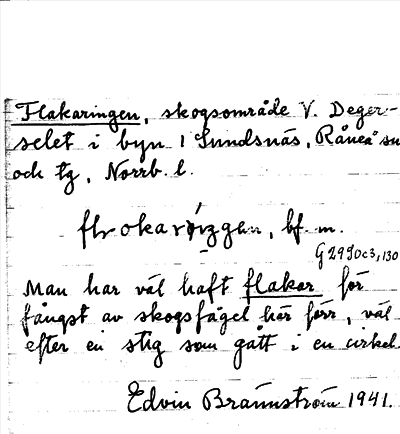 Flakaringen, skogsområde V. Deger-
selet i byn 1 Sundsnäs, Råneå sn
och tg, Norrb. l.
bf. m.
Man har väl haft flakar för
fångst av skogsfågel här förr, väl
efter en stig som gått i en cirkel.
Edvin Brännström 1941.